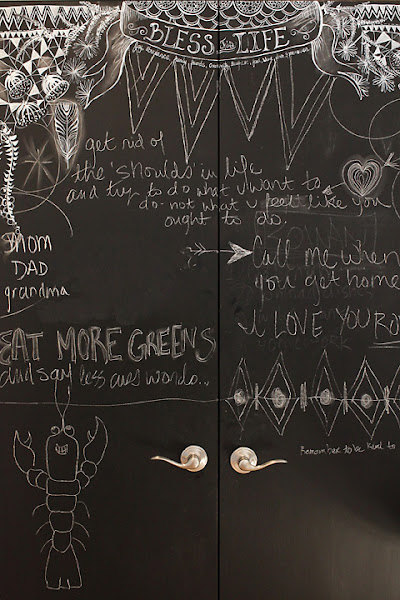 BLESS this LIFE
get rid of
the 'shoulds' in life
and try to do what u want to
do - not what u feel like you
ought to do
mom
DAD
grandma
Call me when
you get home
I LOVE YOU
EAT MORE GREENS
and say less cuss words..
Remember to be kind to